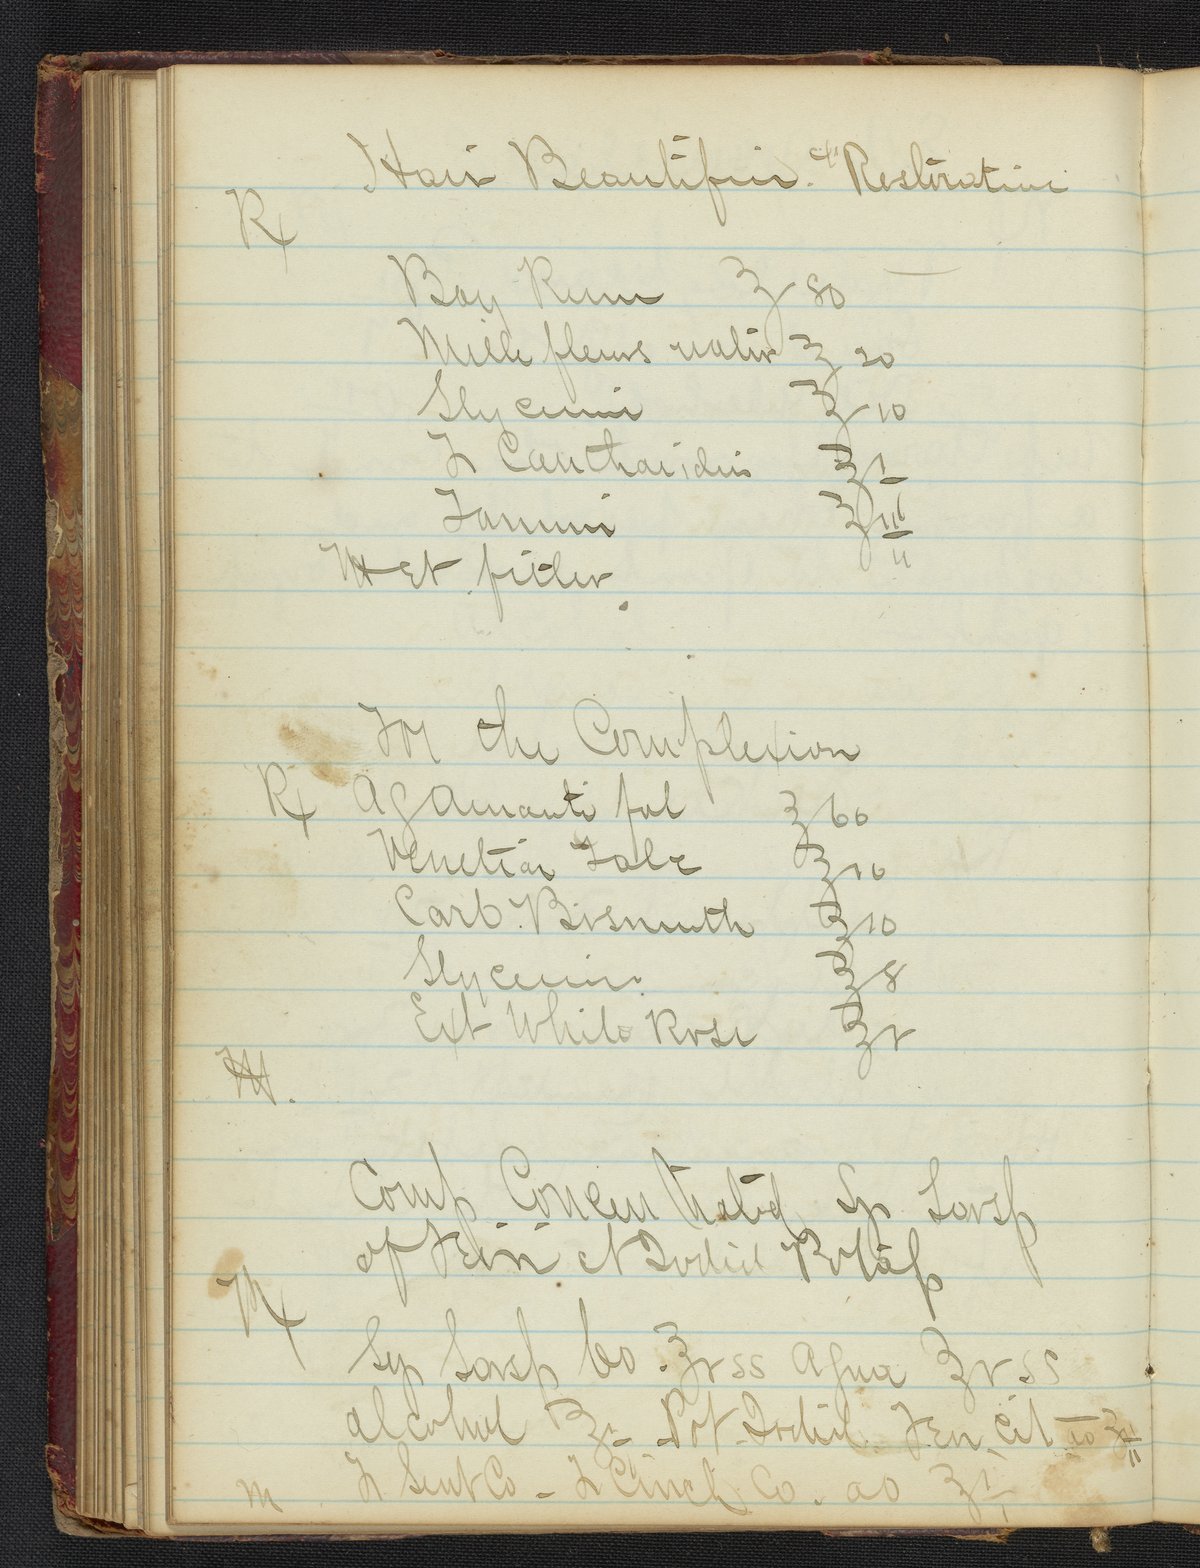 Hair Beautifier "Restorative
Rx
Bay Rum ℥ 80
Mille fleurs water ℥ 20
Glycerine ℥ 10
Tr Cantharides ℥ i
Tannin ʒ ii
M et filter.
For the Complexion
Rx Aq Amant
Venetian Talc ℥ 10
Carb. Bismuth ℥ 10
Glycerine. ℥ 8
Ext White Rose ℥ v
M.
Comp Concentrated Sy Sarsp
of Ferri et Iodid Potass
Rx
Sy Sarsp Co. ℥vss Aqua ℥vss
Alcohol ℥i Pot Iodid Ferri Cit
M Tr Gent Co - Tr Cinch Co. aa ℥ i